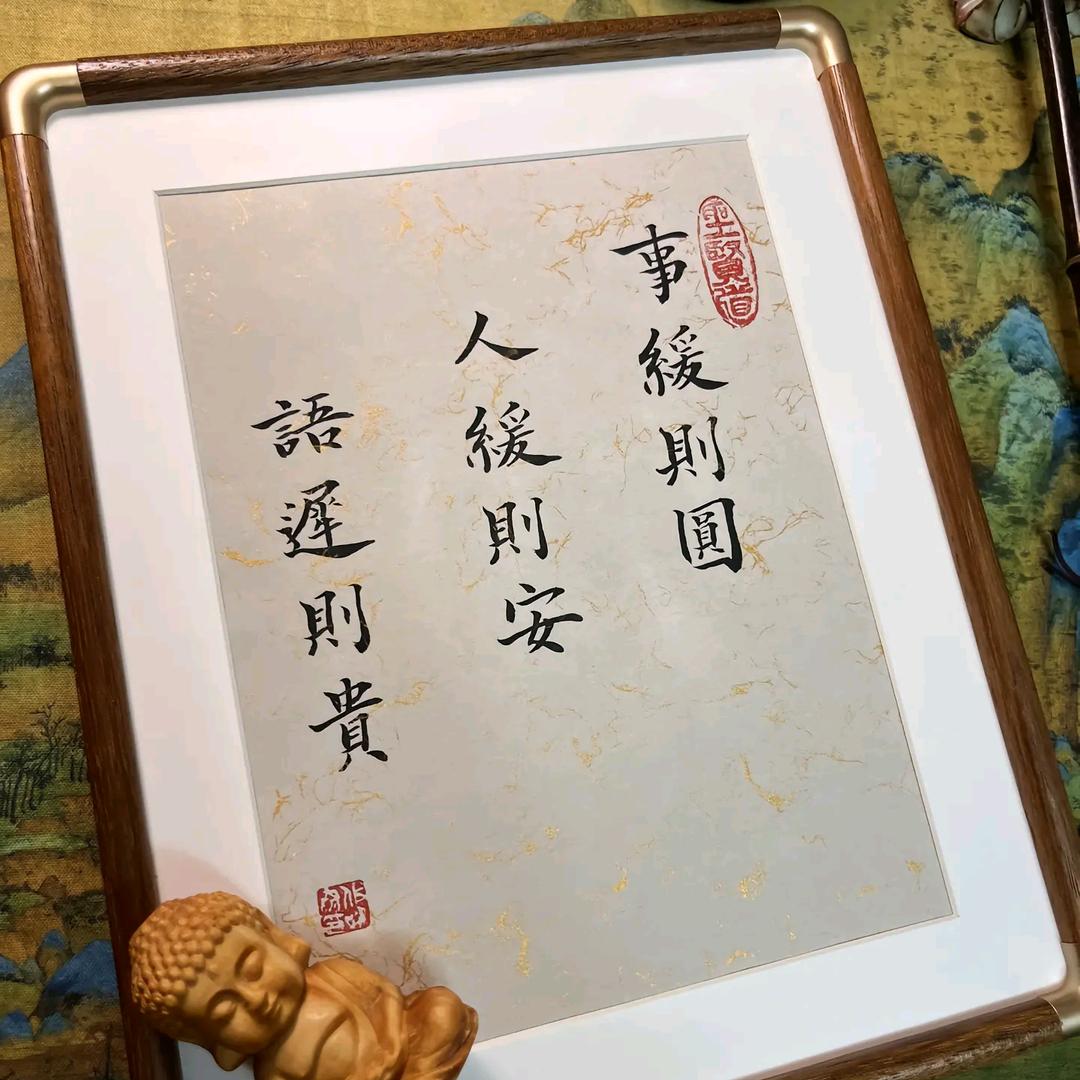 聖賢道
事緩則圓
人緩則安
語遲則貴